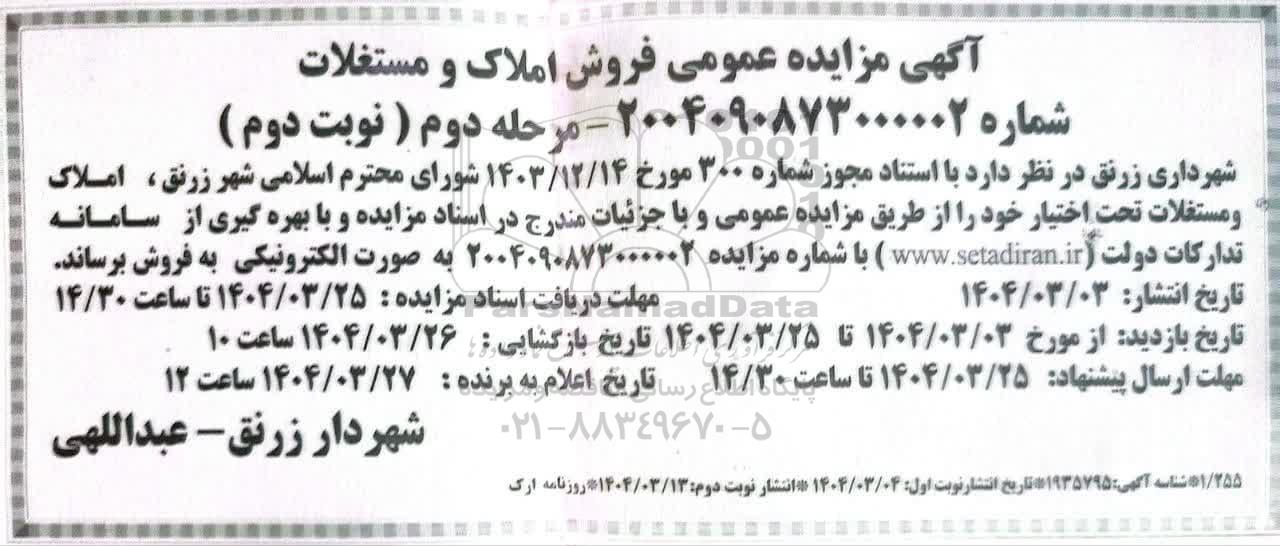 آگهی مزایده عمومی فروش املاک و مستغلات
شماره ۲۰۰۴۰۹۰۸۷۳۰۰۰۰۰۲ - مرحله دوم ( نوبت دوم )
شهرداری زرنق در نظر دارد با استناد مجوز شماره ۳۰۰ مورخ ۱۴۰۳/۱۲/۱۴ شورای محترم اسلامی شهر زرنق ، املاک
ومستغلات تحت اختیار خود را از طریق مزایده عمومی و با جزئیات مندرج در اسناد مزایده و با بهره گیری از سامانه
تدارکات دولت (www.setadiran.ir ) با شماره مزایده ۲۰۰۴۰۹۰۸۷۳۰۰۰۰۰۲ به صورت الکترونیکی به فروش برساند.
تاریخ انتشار: ۱۴۰۴/۰۳/۰۳ مهلت دریافت اسناد مزایده : ۱۴۰۴/۰۳/۲۵ تا ساعت ۱۴/۳۰
تاریخ بازدید: از مورخ ۱۴۰۴/۰۳/۰۳ تا ۱۴۰۴/۰۳/۲۵ تاریخ بازگشایی : ۱۴۰۴/۰۳/۲۶ ساعت ۱۰
مهلت ارسال پیشنهاد: ۱۴۰۴/۰۳/۲۵ تا ساعت ۱۴/۳۰ تاریخ اعلام به برنده : ۱۴۰۴/۰۳/۲۷ ساعت ۱۲
شهردار زرنق - عبداللهی
۱/۲۵۵*شناسه آگهی:۱۹۳۵۷۹۵*تاریخ انتشارنوبت اول: ۱۴۰۴/۰۳/۰۴ *انتشار نوبت دوم:۱۴۰۴/۰۳/۱۳*روزنامه ارک
ParsNamadData
پایگاه اطلاع رسانی مناقصه ومزایده
۰۲۱-۸۸۳۴۹۶۷۰-۵